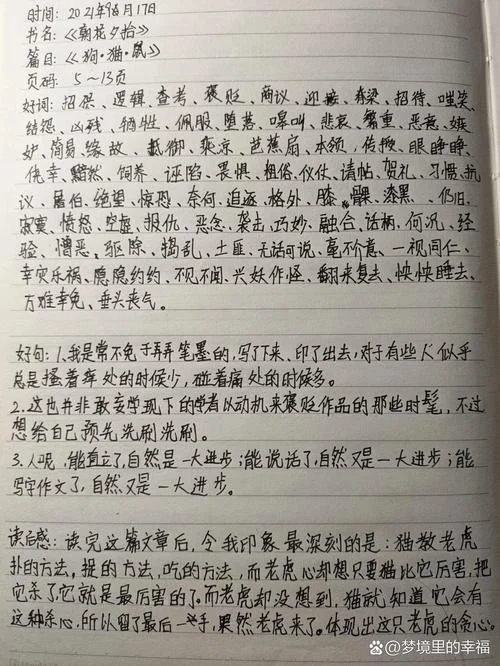 时间：2021年9月17日
书名：《朝花夕拾》
篇目：《狗·猫·鼠》
页码：5～13页
好词：招供、逻辑、查考、褒贬、商议、迎接、脊梁、招待、嗤笑、
结怨、凶残、牺牲、佩服、堕落、嗥叫、悲哀、繁重、恶意、嫉
妒、简易、缘故、抵御、乘凉、芭蕉扇、本领、传授、眼睁睁、
侥幸、黯然、饲养、诬陷、畏惧、粗俗、仪仗、请帖、贺礼、习惯、抗
议、屠伯、绝望、惊恐、奈何、追逐、格外、膝、髁、漆黑、仍旧、
寂寞、愤怒、空虚、报仇、恶念、袭击、巧妙、融合、话柄、何况、经
验、憎恶、驱除、捣乱、土匪、无话可说、毫不介意、一视同仁、
幸灾乐祸、隐隐约约、不见不闻、兴妖作怪、翻来复去、怏怏睡去、
万难幸免、垂头丧气。
好句：1、我是常不免于弄弄笔墨的，写了下来、印了出去，对于有些人似乎
总是搔着痒处的时候少，碰着痛处的时候多。
2.这也并非敢妄学现下的学者以动机来褒贬作品的那些时髦，不过
想给自己预先洗刷洗刷。
3.人呢，能直立了，自然是一大进步；能说话了，自然又是一大进步；能
写字作文了，自然又是一大进步。
读后感：读完这篇文章后，令我印象最深刻的是：猫教老虎
扑的方法，捉的方法，吃的方法，而老虎心却想只要猫比它厉害，把
它杀了它就是最厉害的了。而老虎却没想到，猫就知道它会有
这种杀心，所以留了最后一手，果然老虎来了。体现出这只老虎的贪心。
百家号/梦境里的幸福